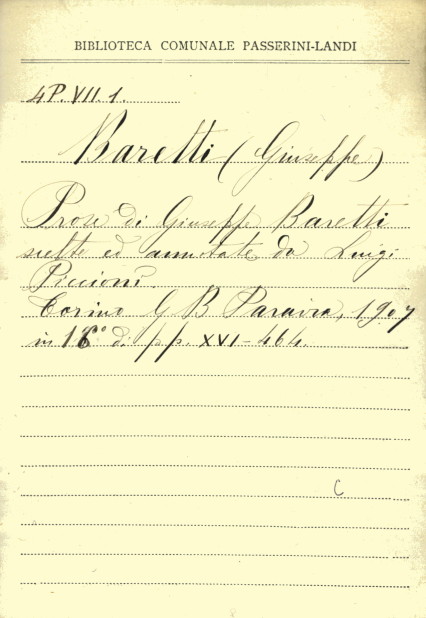 BIBLIOTECA COMUNALE PASSERINI-LANDI
4P.VII.1.
Baretti (Giuseppe)
Prose di Giuseppe Baretti
scelte ed annotate da Luigi
Piccioni.
Torino G B Paravia, 1907
in 16° di pp. XVI-464.
C